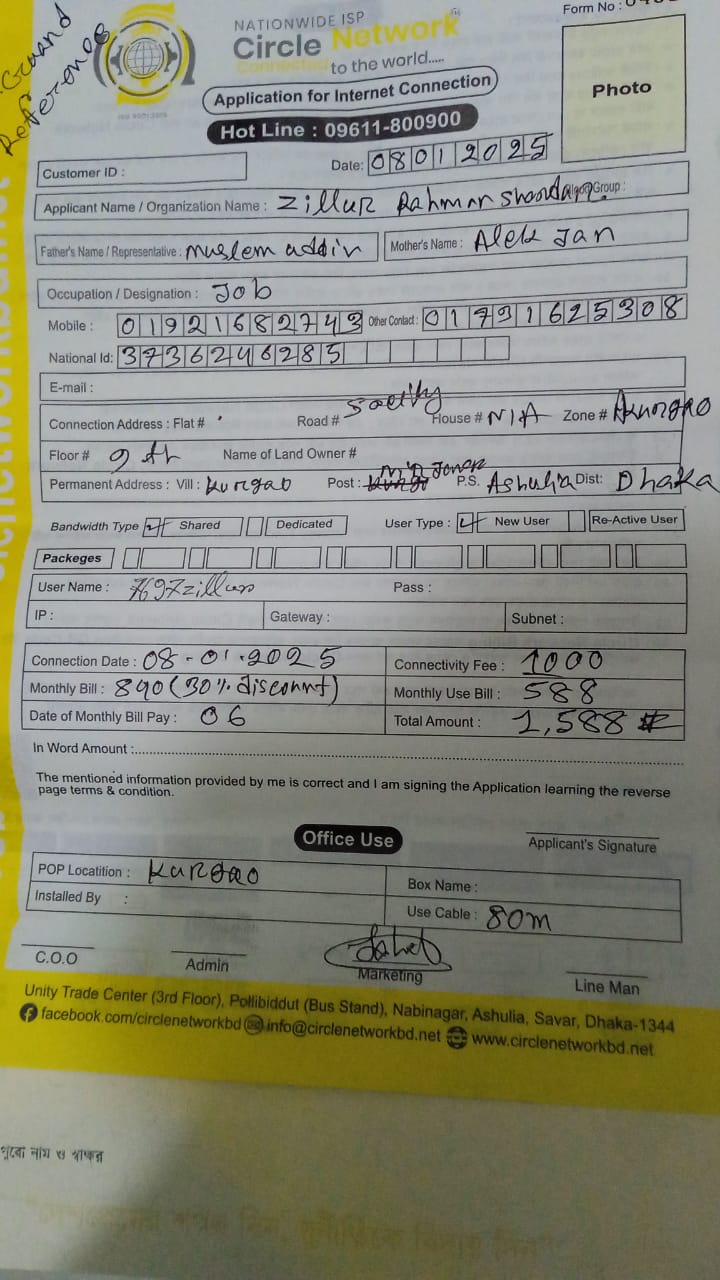 Ground
Reference
NATIONWIDE ISP
Circle Network
Connected to the world.....
ISO 9001:2015
Form No :
Photo
Application for Internet Connection
Hot Line : 09611-800900
Customer ID :
Date: 08012025
Applicant Name / Organization Name : Zillur Rahman Group :
Father's Name / Representative : muslem uddin Mother's Name : Alek Jan
Occupation / Designation : Job
Mobile : 01921682743 Other Contact : 01791625308
National Id: 3736246285
E-mail :
Connection Address : Flat # Road # House # N/A Zone # Kurgao
Floor # 9 th Name of Land Owner #
Permanent Address : Vill : Kurgao Post : P.S. Ashulia Dist: Dhaka
Bandwidth Type Shared Dedicated User Type : New User Re-Active User
Packeges
User Name : 7697zillur Pass :
IP : Gateway : Subnet :
Connection Date : 08-01-2025 Connectivity Fee : 1000
Monthly Bill : 840 (30% discount) Monthly Use Bill : 588
Date of Monthly Bill Pay : 06 Total Amount : 1,588
In Word Amount :
The mentioned information provided by me is correct and I am signing the Application learning the reverse
page terms & condition.
Applicant's Signature
Office Use
POP Locatition : Kurgao Box Name :
Installed By : Use Cable : 80m
C.O.O Admin Marketing Line Man
Unity Trade Center (3rd Floor), Pollibiddut (Bus Stand), Nabinagar, Ashulia, Savar, Dhaka-1344
facebook.com/circlenetworkbd info@circlenetworkbd.net www.circlenetworkbd.net
পুরো নাম ও স্বাক্ষর